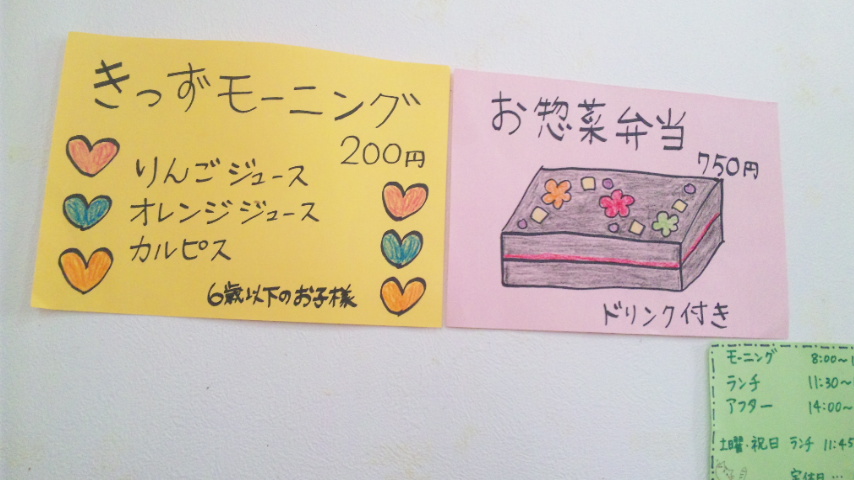 きっずモーニング
200円
りんごジュース
オレンジジュース
カルピス
6歳以下のお子様
お惣菜弁当
750円
ドリンク付き
モーニング 8:00~
ランチ 11:30~
アフター 14:00~
土曜・祝日 ランチ 11:45
定休日…